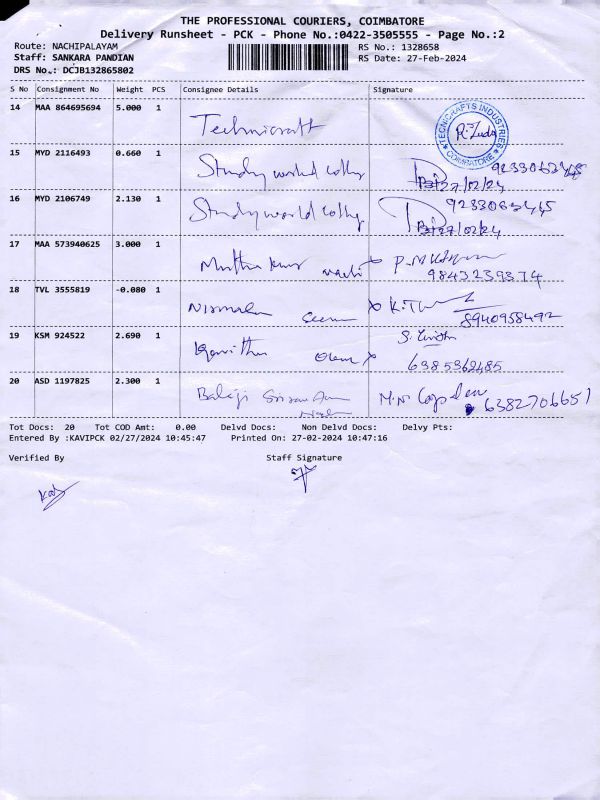 THE PROFESSIONAL COURIERS, COIMBATORE
Delivery Runsheet - PCK - Phone No.:0422-3505555 - Page No.:2
Route: NACHIPALAYAM
RS No.: 1328658
Staff: SANKARA PANDIAN
RS Date: 27-Feb-2024
DRS No.: DCJB132865802
S No Consignment No Weight PCS Consignee Details Signature
14 MAA 864695694 5.000 1 Technicraft
TECNICRAFTS INDUSTRIES
COIMBATORE
15 MYD 2116493 0.660 1 Study world
27/02/24
16 MYD 2106749 2.130 1 Study world
9233063445
27/02/24
17 MAA 573940625 3.000 1
9843239374
18 TVL 3555819 -0.080 1
8940958492
19 KSM 924522 2.690 1 Kavitha
6385362485
20 ASD 1197825 2.300 1 Balaji
6382706651
Tot Docs: 20 Tot COD Amt: 0.00 Delvd Docs: Non Delvd Docs: Delvy Pts:
Entered By :KAVIPCK 02/27/2024 10:45:47 Printed On: 27-02-2024 10:47:16
Verified By Staff Signature